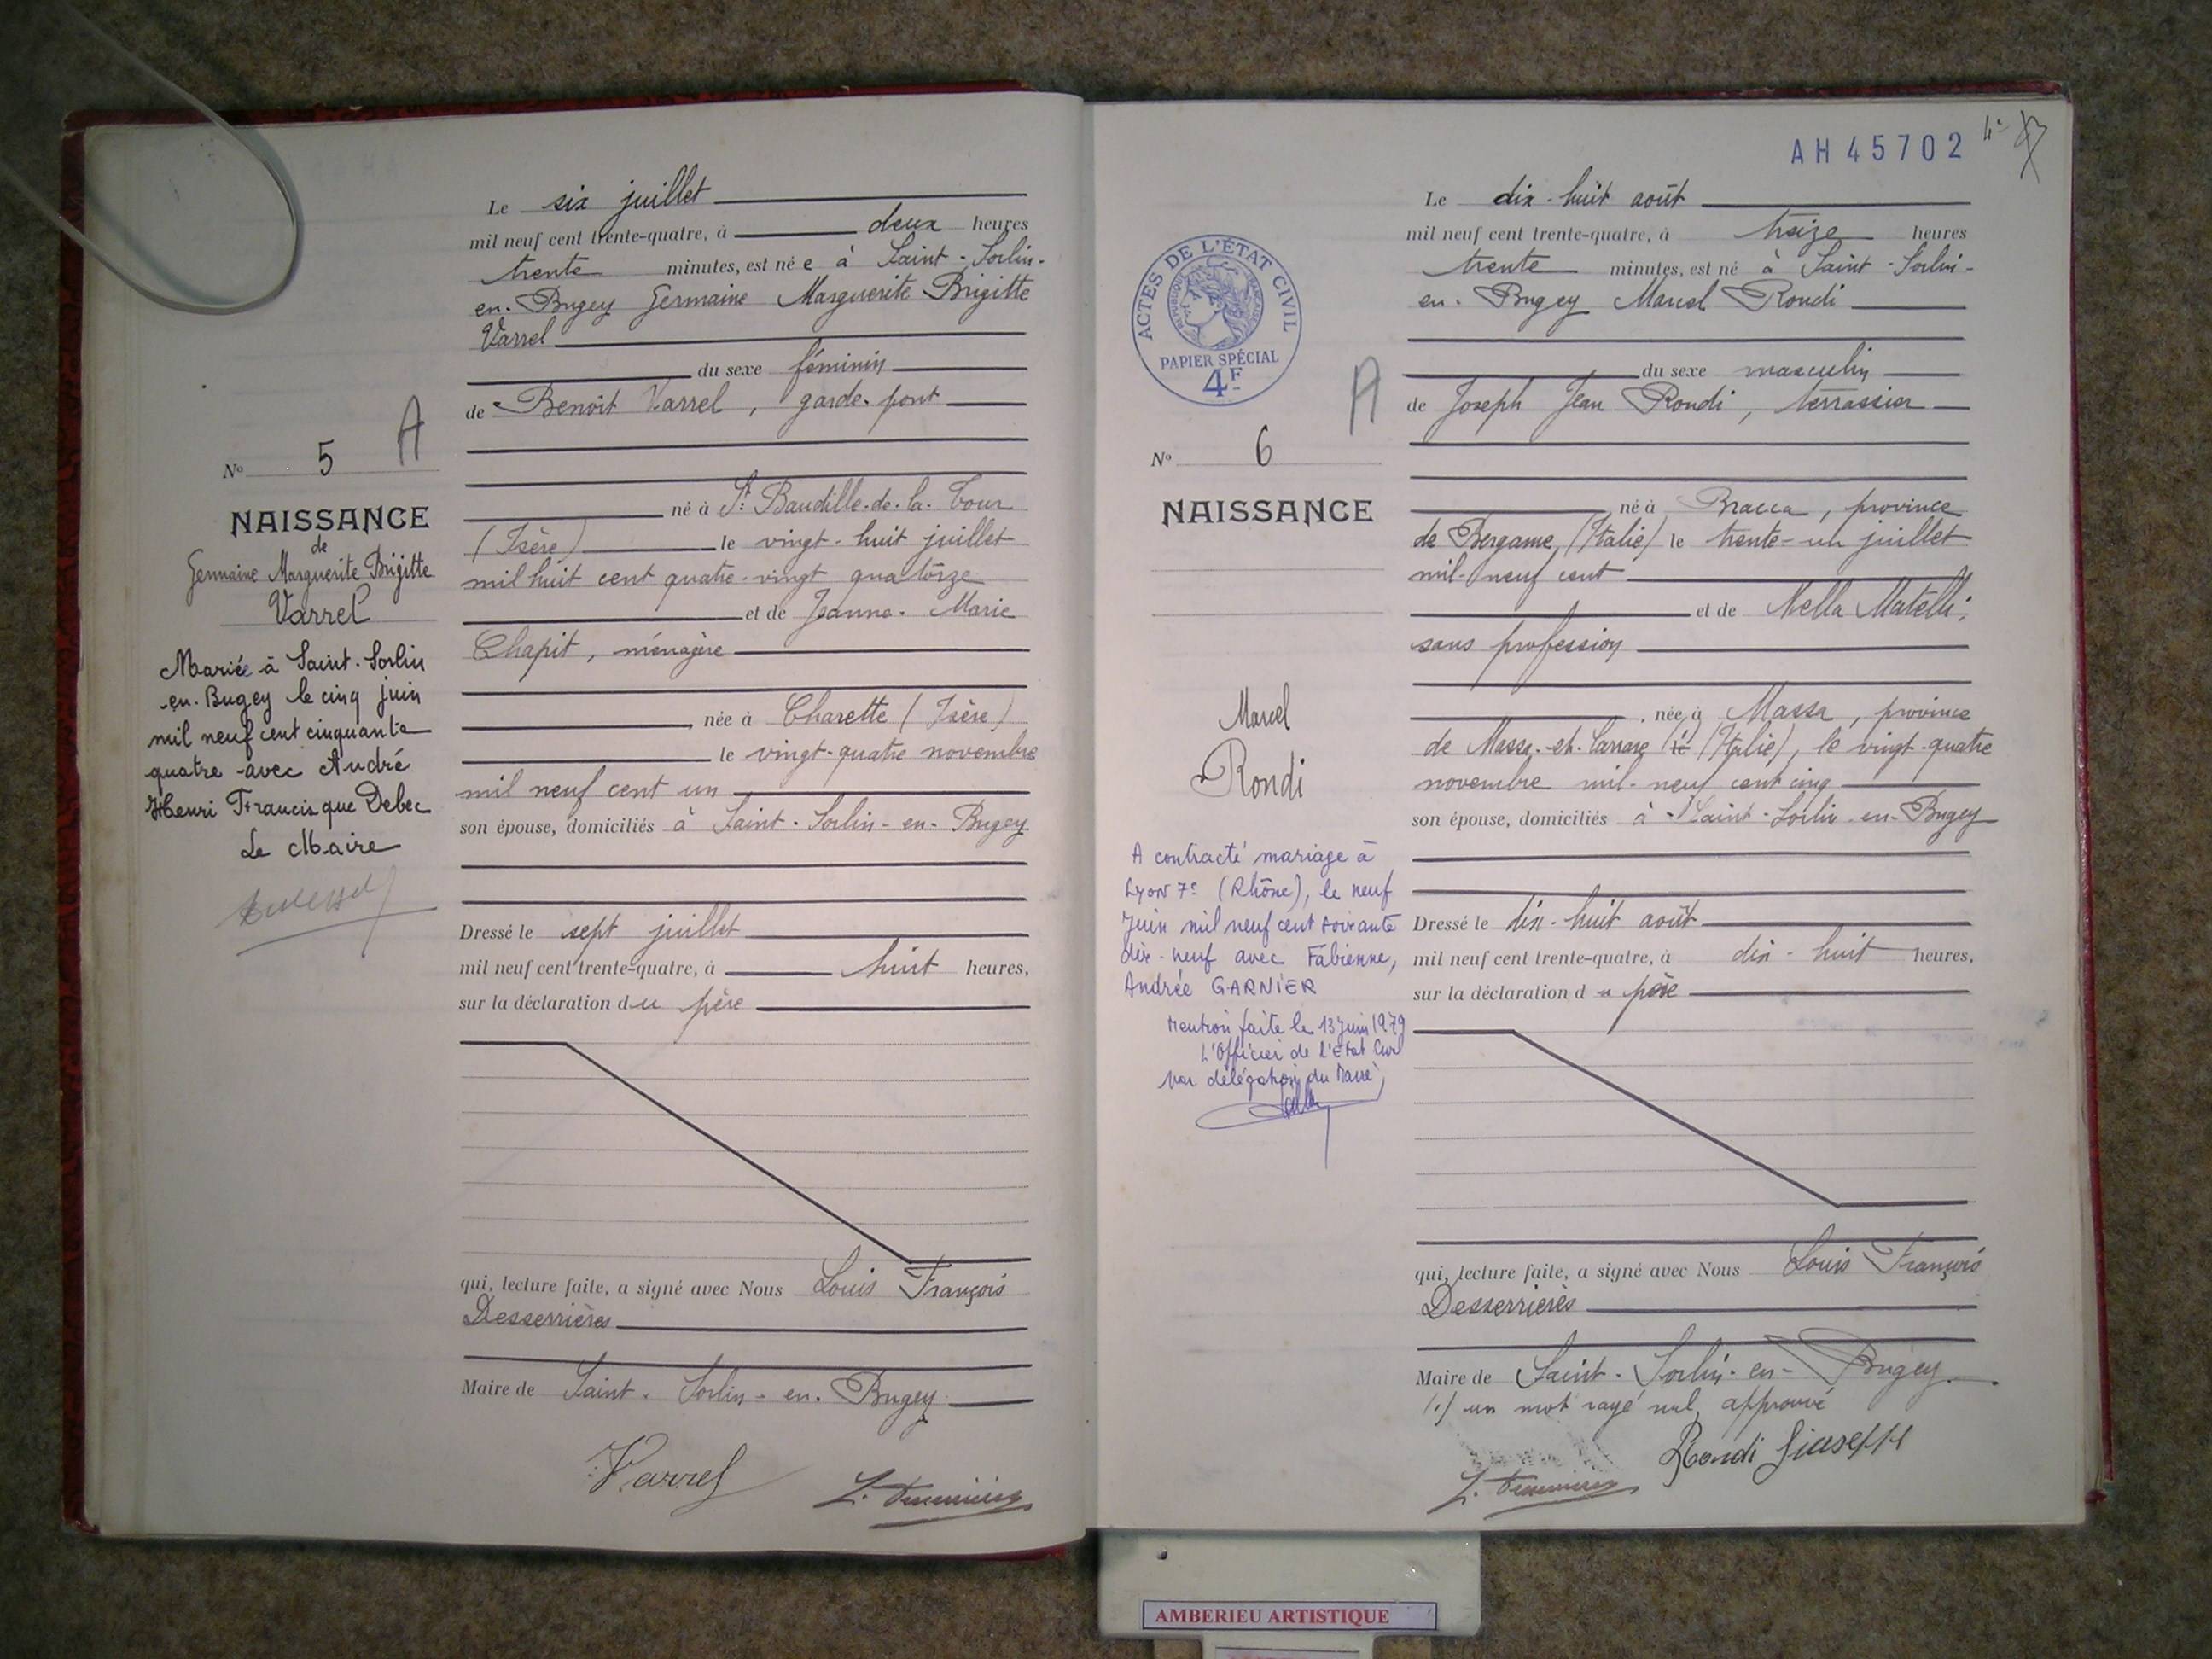 Le six juillet
mil neuf cent trente-quatre, à deux heures
trente minutes, est née à Saint-Sorlin-
en-Bugey Germaine Marguerite Brigitte
Varrel
du sexe féminin
de Benoît Varrel, garde-pont
né à St Baudille-de-la-Tour
(Isère) le vingt-huit juillet
mil huit cent quatre-vingt quatorze
et de Jeanne-Marie
Chapit, ménagère
née à Charette (Isère)
le vingt-quatre novembre
mil neuf cent un
son épouse, domiciliés à Saint-Sorlin-en-Bugey
Dressé le sept juillet
mil neuf cent trente-quatre, à huit heures,
sur la déclaration du père
qui, lecture faite, a signé avec Nous Louis François
Desserrières
Maire de Saint-Sorlin-en-Bugey
Varrel
A
No 5
NAISSANCE
de
Germaine Marguerite Brigitte
Varrel
Mariée à Saint-Sorlin
en-Bugey le cinq juin
mil neuf cent cinquante
quatre avec André
Henri Francisque Debec
Le Maire
AH45702
4e
ACTES DE L'ÉTAT CIVIL
RÉPUBLIQUE FRANÇAISE
PAPIER SPÉCIAL
4F
A
No 6
NAISSANCE
Marcel
Rondi
A contracté mariage à
Lyon 7e (Rhône), le neuf
Juin mil neuf cent soixante
dix-neuf avec Fabienne,
Andrée GARNIER
Mention faite le 13 Juin 1979
L'Officier de l'Etat Civil
par délégation du Maire,
Le dix-huit août
mil neuf cent trente-quatre, à treize heures
trente minutes, est né à Saint-Sorlin-
en-Bugey Marcel Rondi
du sexe masculin
de Joseph Jean Rondi, terrassier
né à Bracca, province
de Bergame (Italie) le trente-un juillet
mil-neuf cent
et de Nella Matelli,
sans profession
née à Massa, province
de Massa-et-Carrare (Italie), le vingt-quatre
novembre mil-neuf cent cinq
son épouse, domiciliés à Saint-Sorlin-en-Bugey
Dressé le dix-huit août
mil neuf cent trente-quatre, à dix-huit heures,
sur la déclaration du père
qui, lecture faite, a signé avec Nous Louis François
Desserrières
Maire de Saint-Sorlin-en-Bugey
(.) un mot rayé nul, approuvé
Rondi Giuseppe
AMBERIEU ARTISTIQUE